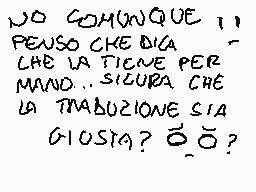 NO COMUNQUE
PENSO CHE DICA
CHE LA TIENE PER
MANO... SICURA CHE
LA TRADUZIONE SIA
GIUSTA? ?